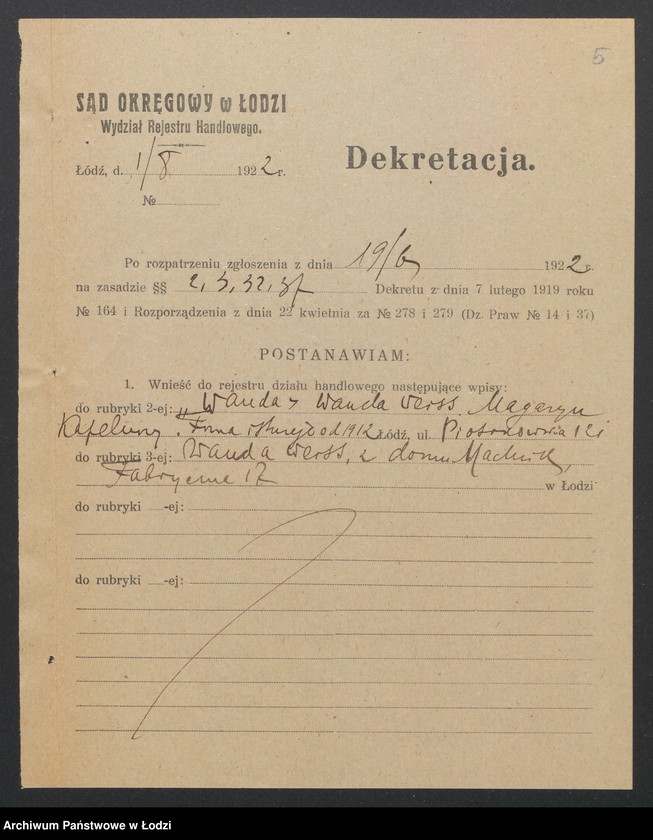 5
SĄD OKRĘGOWY w ŁODZI
Wydział Rejestru Handlowego.
Dekretacja.
Łódź, d. 1/8 1922 r.
№
Po rozpatrzeniu zgłoszenia z dnia 19/6 1922 r.
na zasadzie §§ 2, 3, 32, 37 Dekretu z dnia 7 lutego 1919 roku
№ 164 i Rozporządzenia z dnia 22 kwietnia za № 278 i 279 (Dz. Praw № 14 i 37)
POSTANAWIAM:
1. Wnieść do rejestru działu handlowego następujące wpisy:
do rubryki 2-ej: „Wanda" Wanda Magazyn
Firma od 1912 Łódź, ul.
do rubryki 3-ej: Wanda z domu
17 w Łodzi
do rubryki -ej:
do rubryki -ej:
Archiwum Państwowe w Łodzi